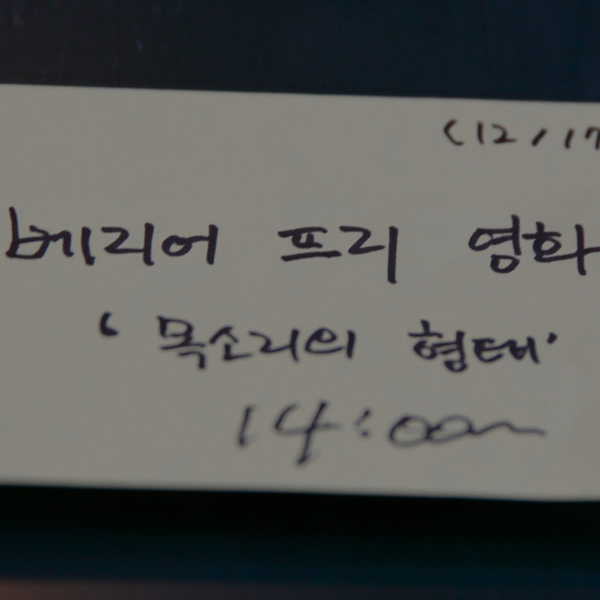 (12/17
베리어 프리 영화
‘목소리의 형태’
14:00~